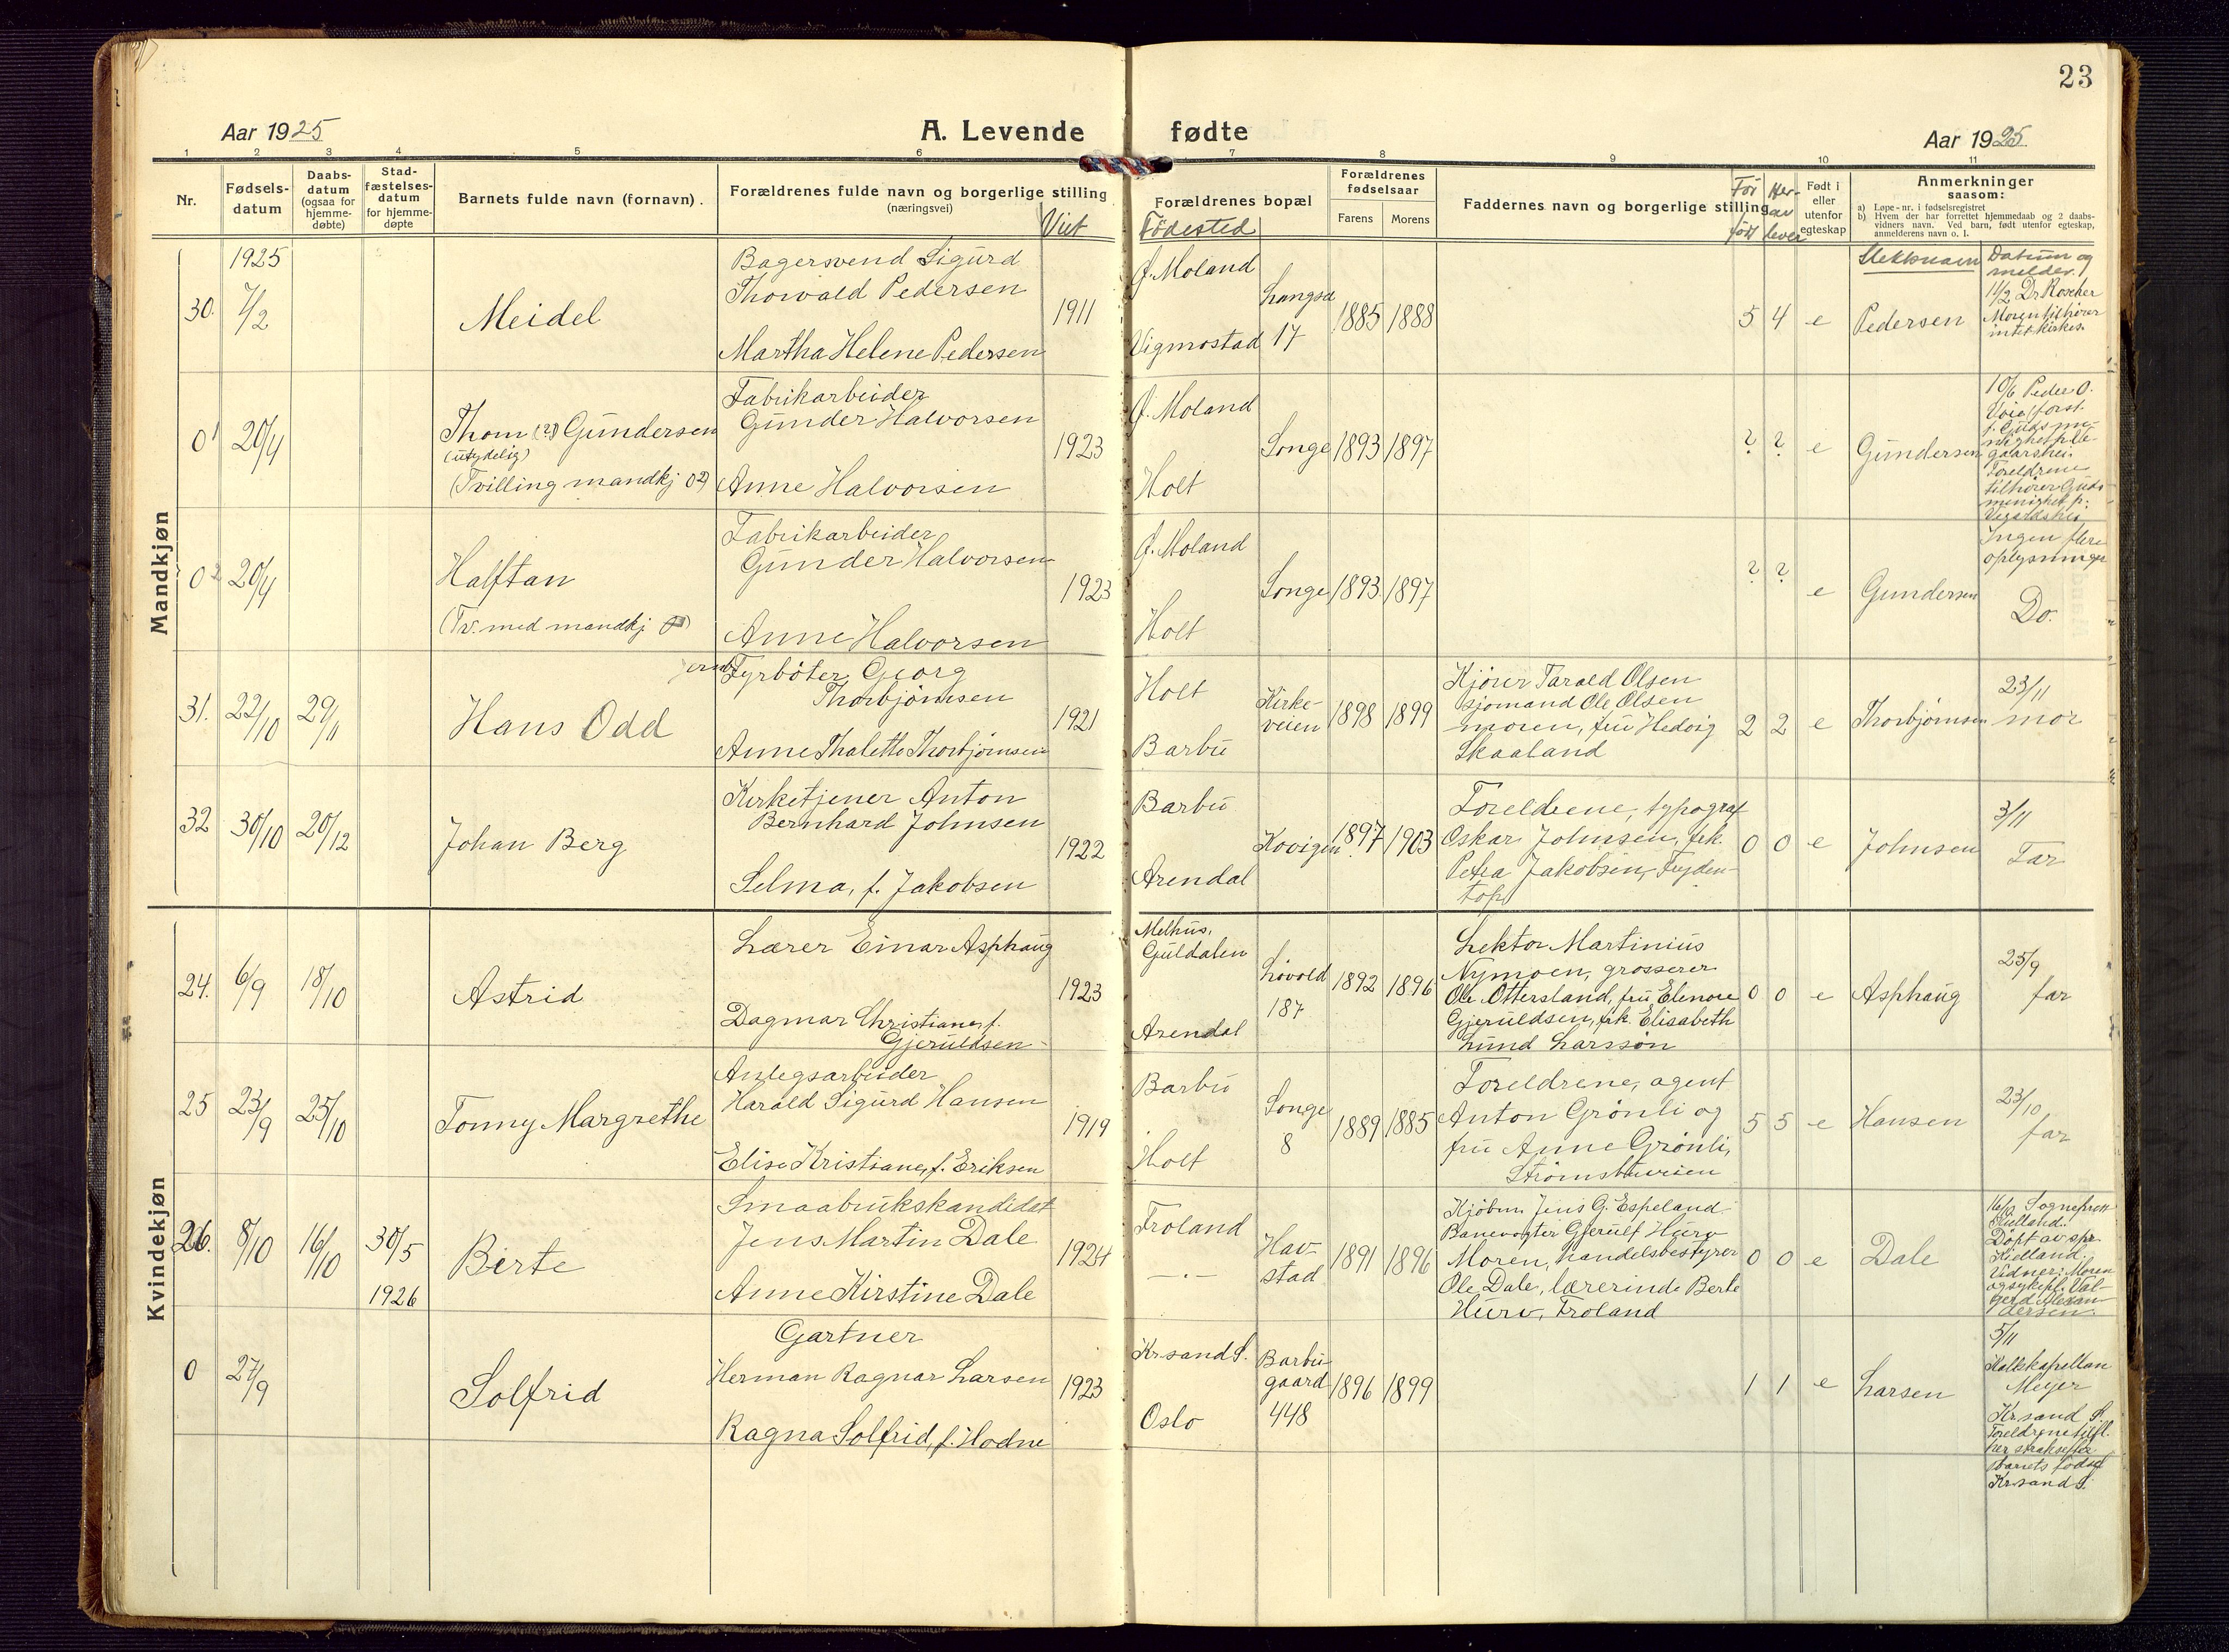 23
Aar 1925
A. Levende fødte
Aar 1925
1 2 3 4 5 6 7 8 9 10 11
Nr.
Fødsels-
datum
Daabs-
datum
(ogsaa for
hjemme-
døbte)
Stad-
fæstelses-
datum
for hjemme-
døpte
Barnets fulde navn (fornavn).
Forældrenes fulde navn og borgerlige stilling
(næringsvei)
Viet
Forældrenes bopæl
Födested
Forældrenes
fødselsaar
Farens
Morens
Faddernes navn og borgerlige stilling
För
född
Her-
av
lever
Født i
eller
utenfor
egteskap
Anmerkninger
saasom:
a) Løpe-nr. i fødselsregistret
b) Hvem der har forrettet hjemmedaab og 2 daabs-
vidners navn. Ved barn, født utenfor egteskap,
anmelderens navn o. l.
Mandkjøn
1925
30.
7/2
Meidel
Bagersvend Sigurd
Thorvald Pedersen
Martha Helene Pedersen
1911
Ø. Moland
Vigmostad
Langsæ
17
1885
1888
5
4
e
Slektsnavn
Pedersen
Datum og
melder.
11/2 Dr Roscher
Moren tilhører
intet kirkes.
0¹
20/4
Thom (?) Gundersen
(utydelig)
(Tvilling mandkj 0²)
Fabrikarbeider
Gunder Halvorsen
Anne Halvorsen
1923
Ø. Moland
Holt
Songe
1893
1897
?
?
e
Gundersen
10/6 Peder O.
forst.
f. Guds me-
nighet
Foreldrene
tilhører Guds
menighet p.
Vegardshei
0²
20/4
Halftan
(Tv. med mandkj 0¹)
Fabrikarbeider
Gunder Halvorsen
Anne Halvorsen
1923
Ø. Moland
Holt
Songe
1893
1897
?
?
e
Gundersen
Ingen flere
oplysninger
Do.
31.
22/10
29/11
Hans Odd
Fyrböter Georg
Thorbjörnsen
Anne Thalette Thorbjörnsen
1921
Holt
Barbu
Kirke-
veien
1898
1899
Kjörer Tarald Olsen
sjömand Ole Olsen
moren, fru Hedvig
Skaaland
2
2
e
Thorbjörnsen
23/11
mor
32
30/10
20/12
Johan Berg
Kirketjener Anton
Bernhard Johnsen
Selma, f. Jakobsen
1922
Barbu
Arendal
Kovigen
1897
1903
Foreldrene, typograf
Oskar Johnsen, frk.
Petra Jakobsen, Fryden-
top
0
0
e
Johnsen
3/11
Far
Kvindekjøn
24.
6/9
18/10
Astrid
Lærer Einar Asphaug
Dagmar Christiane, f.
Gjeruldsen
1923
Melhus,
Guldalen
Arendal
Lövold
187
1892
1896
Lektor Martinius
Nymoen, grosserer
Ole Ottersland, fru Elenore
Gjeruldsen, frk. Elisabeth
Lund Larsson
0
0
e
Asphaug
25/9
far
25
23/9
25/10
Tonny Margrethe
Anlegsarbeider
Harald Sigurd Hansen
Elise Kristiane, f. Eriksen
1919
Barbu
Holt
Songe
8
1889
1885
Foreldrene, agent
Anton Grönli og
fru Anne Grönli,
Strömsbuveien
5
5
e
Hansen
23/10
far
26.
8/10
16/10
30/5
1926
Birte
Smaabrukskandidat
Jens Martin Dale
Anne Kirstine Dale
1924
Froland
—"—
Hav-
stad
1891
1896
Kjöbm. Jens G. Espeland
Banevogter Gjerulf Hurv
Moren, handelsbestyrer
Ole Dale, lærerinde Berte
Hurv, Froland
0
0
e
Dale
16/10 Sogneprest
Kielland.
Döpt av spr.
Kielland.
Vidner: Moren
og sykepl. Val-
gerd Alexan-
dersen.
0
27/9
Solfrid
Gartner
Herman Ragnar Larsen
Ragna Solfrid, f. Hodne
1923
Kr.sand S.
Oslo
Barbu-
gaard
448
1896
1899
1
1
e
Larsen
5/11
Kallskapellan
Meyer
Kr.sand S.
Foreldrene tilfl.
her straks efter
Barnets födsel
Kr.sand S.